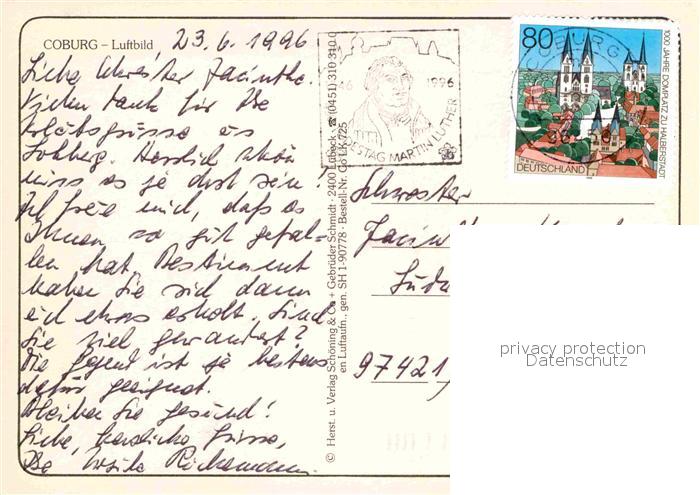 COBURG – Luftbild
, 23.6.1996
Liebe Schwester Jacintha.
Vielen Dank für Die
Urlaubsgrüsse aus
Herrlich schön
muss es je dort sein!
Ich freue mich, dass es
Ihnen so gut gefal-
len hat. Bestimmt
haben Sie sich dann
auch etwas erholt. Sind
Sie viel gewandert?
Die Gegend ist je bestens
dafür geeignet.
Bleiben Sie gesund!
Liebe, herzliche Grüsse,
© Herst. u. Verlag Schöning & Co + Gebrüder Schmidt · 2400 Lübeck · ☎ (0451) 310 310 0
en Luftaufn., gen. SH 1-90778 · Bestell-Nr. Co LK 725
46 1996
TAG MARTIN LUTHER
COBURG
80
1000 JAHRE DOMPLATZ ZU HALBERSTADT
DEUTSCHLAND
Schwester
97421
privacy protection
Datenschutz